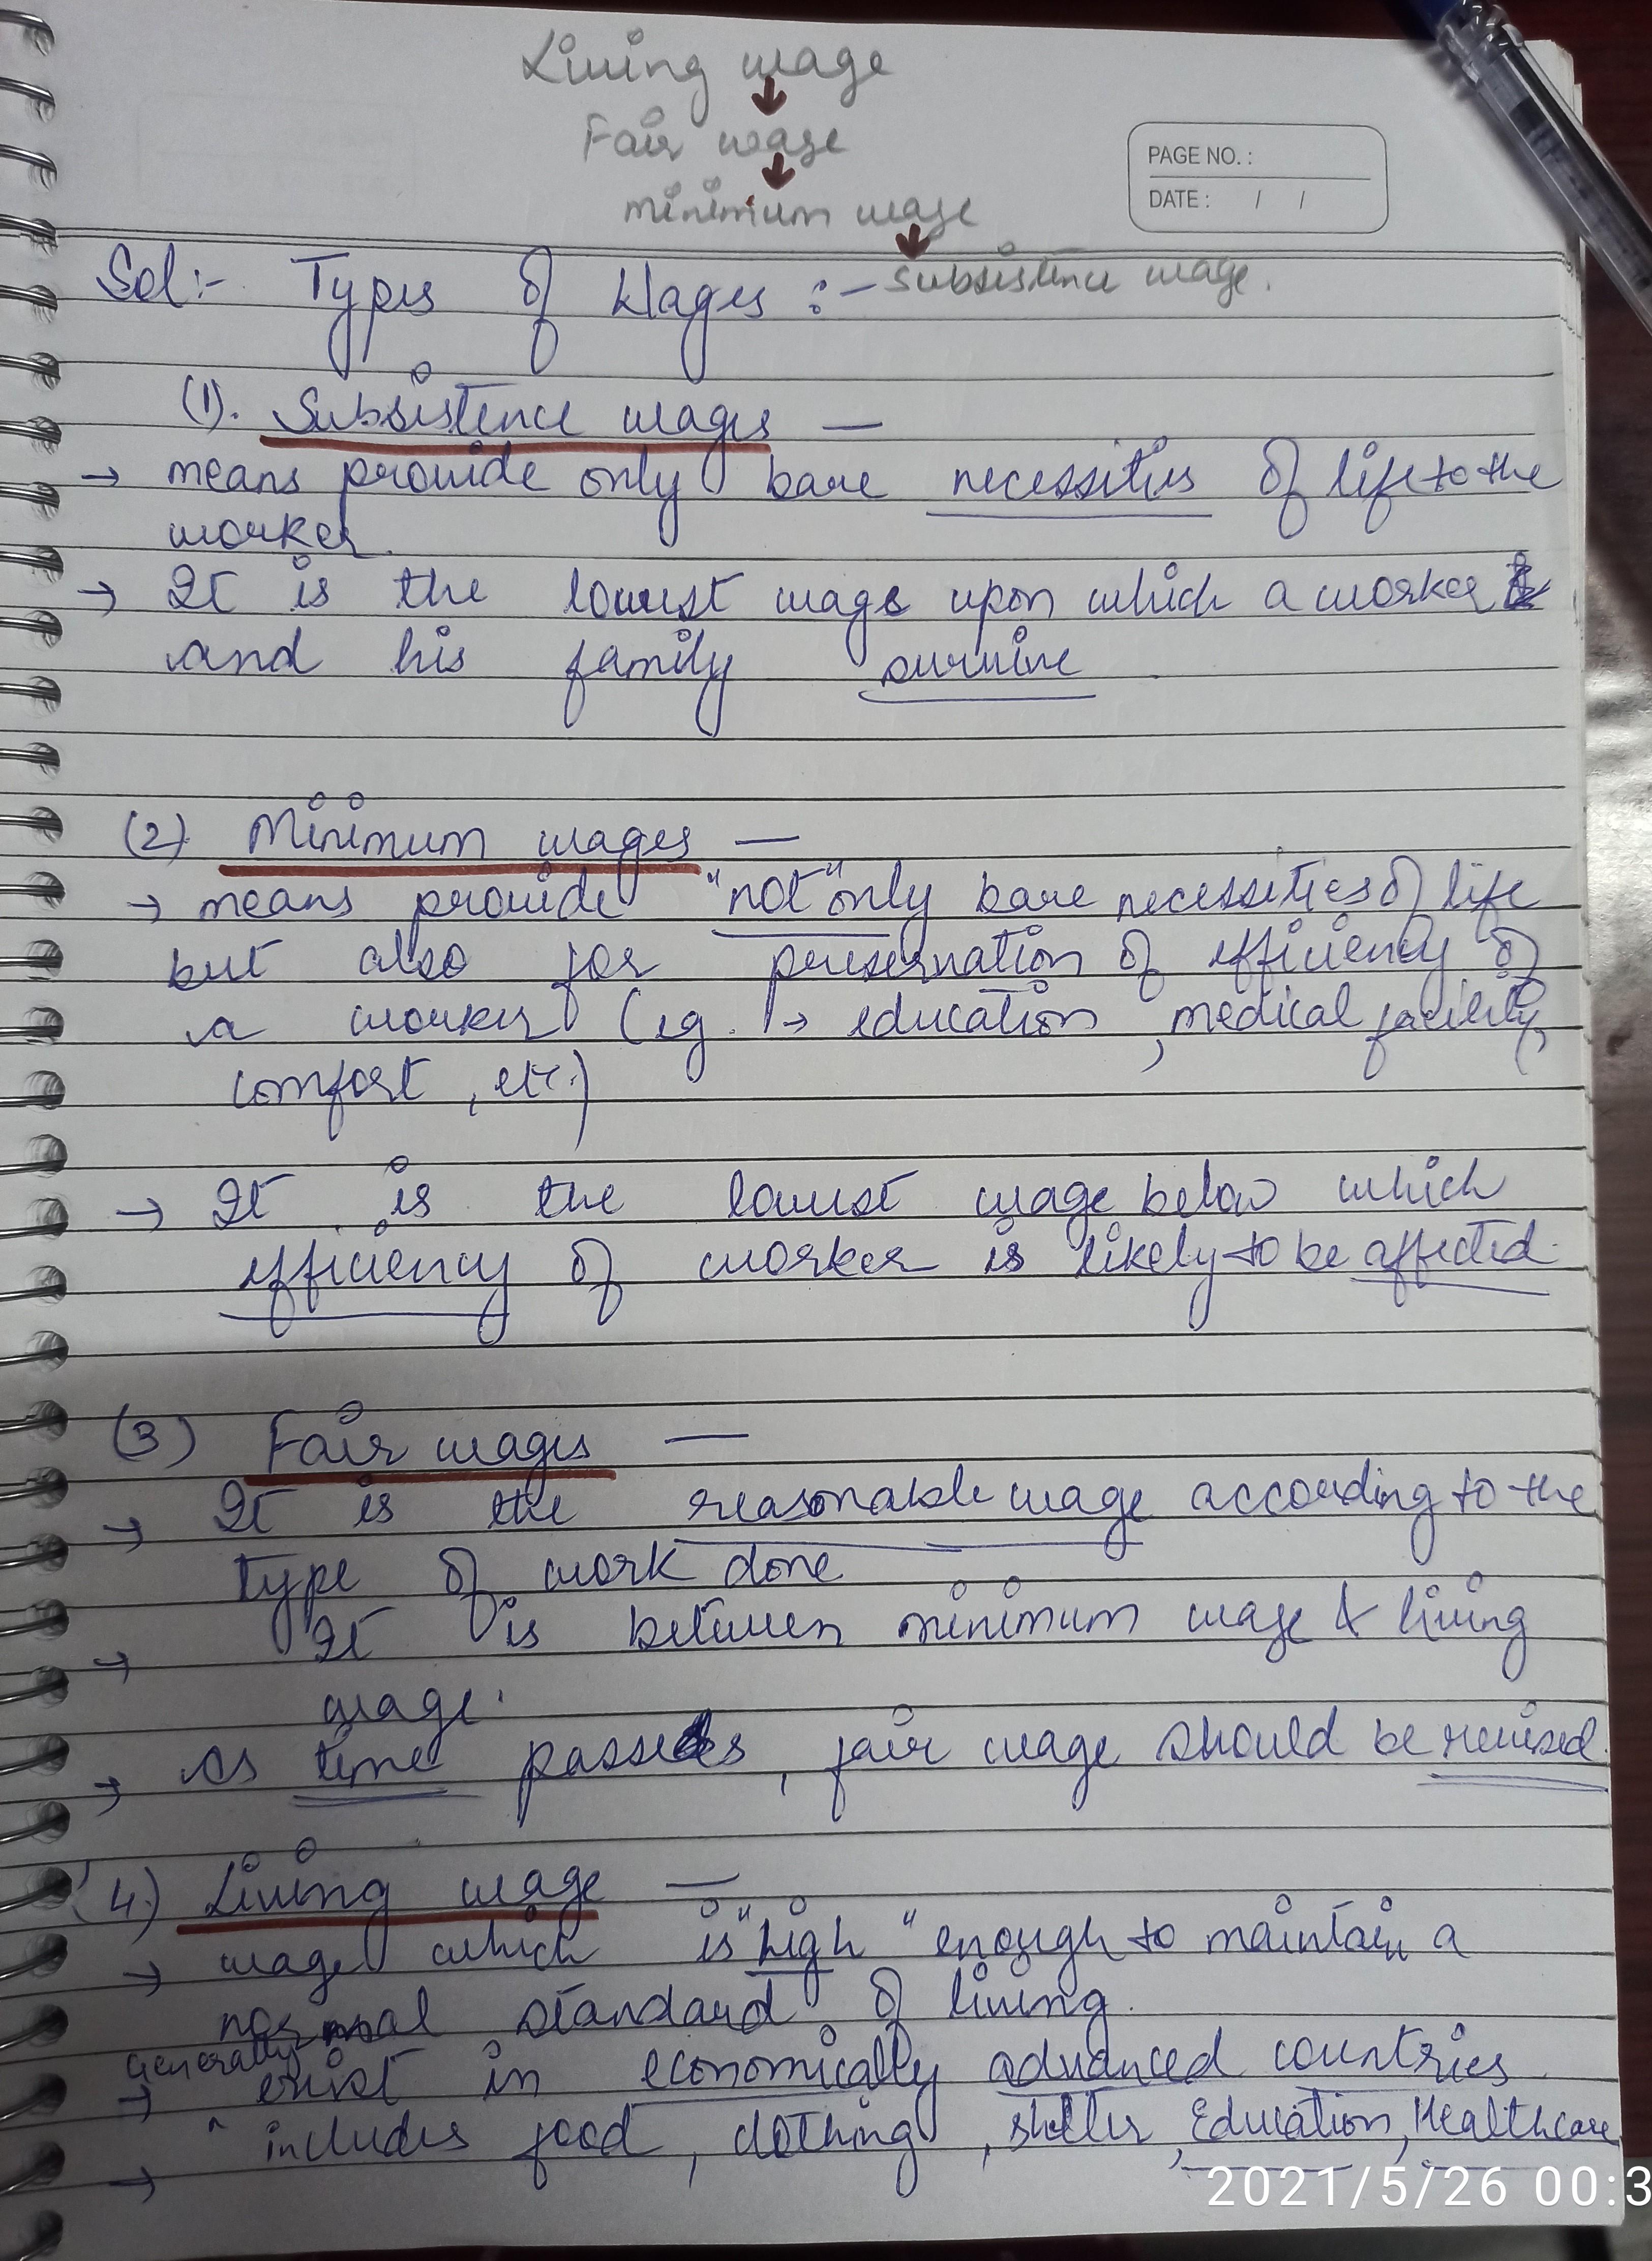 Living wage
Fair wage
minimum wage
PAGE NO. :
DATE : / /
subsistence wage.
Sol:- Types of Wages :-
(1). Subsistence wages —
→ means provide only bare necessities of life to the
worker.
→ It is the lowest wage upon which a worker
and his family survive
(2) Minimum wages —
→ means provide "not" only bare necessities of life
but also for preservation of efficiency of
a worker (eg. → education, medical facility,
comfort, etc.)
→ It is the lowest wage below which
efficiency of worker is likely to be affected.
(3) Fair wages —
→ It is the reasonable wage according to the
type of work done
→ It is between minimum wage & living
wage.
→ As time passes, fair wage should be revised.
(4.) Living wage —
→ wage which is "high" enough to maintain a
normal standard of living.
Generally
→ exist in economically advanced countries
→ includes food, clothing, shelter, Education, Healthcare
2021/5/26 00:3